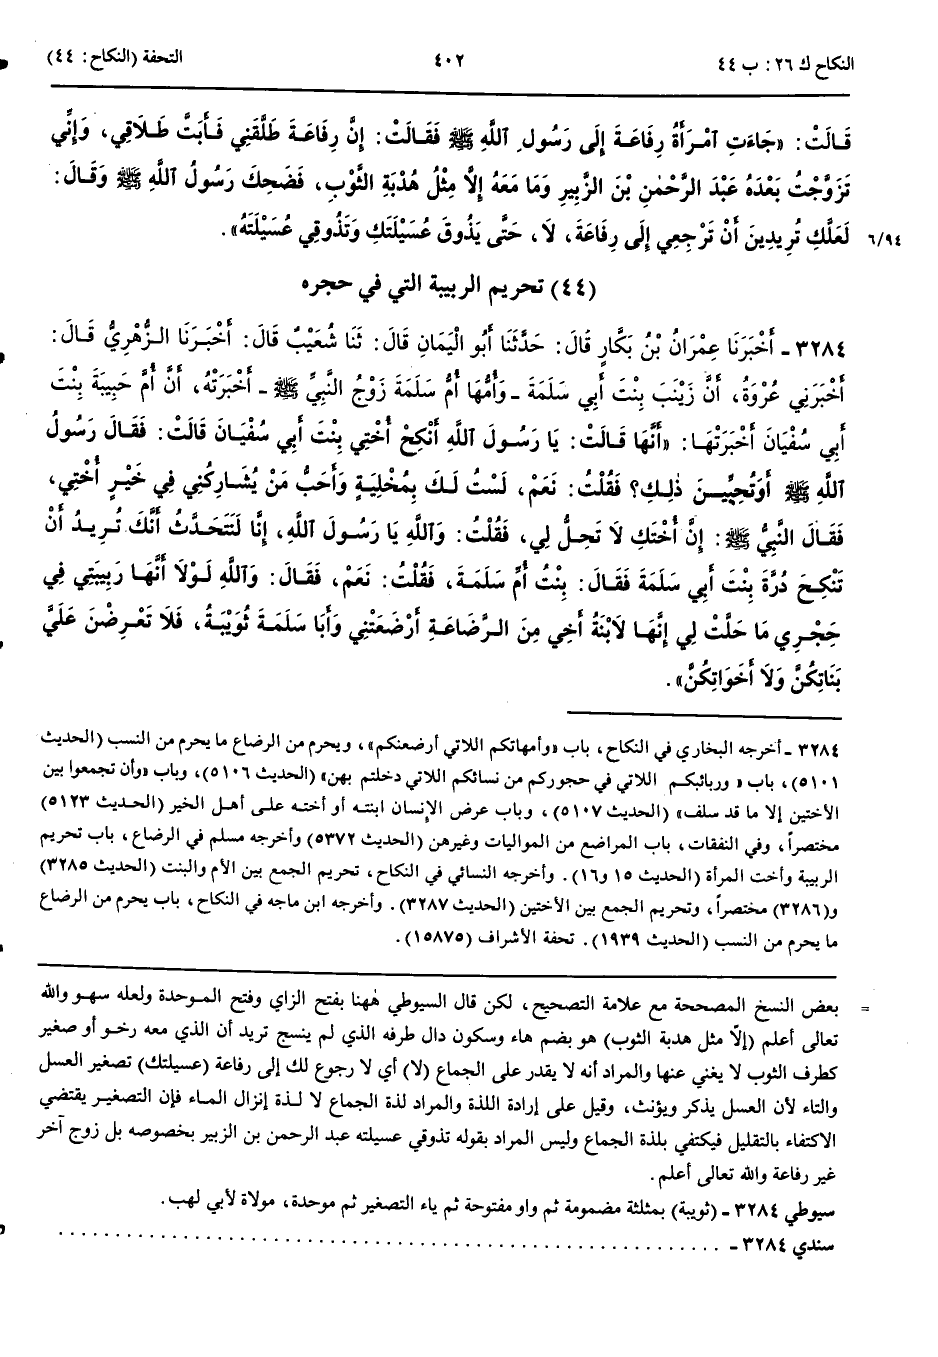 النكاح ك ٢٦: ب ٤٤
٤٠٢
التحفة (النكاح: ٤٤)
قَالَتْ: «جَاءَتِ ٱمْرَأَةُ رِفَاعَةَ إِلَى رَسُولِ ٱللَّهِ ﷺ فَقَالَتْ: إِنَّ رِفَاعَةَ طَلَّقَنِي فَأَبَتَّ طَلَاقِي، وَإِنِّي
تَزَوَّجْتُ بَعْدَهُ عَبْدَ الرَّحْمٰنِ بْنَ الزَّبِيرِ وَمَا مَعَهُ إِلَّا مِثْلُ هُدْبَةِ الثَّوْبِ، فَضَحِكَ رَسُولُ ٱللَّهِ ﷺ وَقَالَ:
٦/٩٤ لَعَلَّكِ تُرِيدِينَ أَنْ تَرْجِعِي إِلَى رِفَاعَةَ، لَا، حَتَّى يَذُوقَ عُسَيْلَتَكِ وَتَذُوقِي عُسَيْلَتَهُ».
(٤٤) تحريم الربيبة التي في حجره
٣٢٨٤ - أَخْبَرَنَا عِمْرَانُ بْنُ بَكَّارٍ قَالَ: حَدَّثَنَا أَبُو الْيَمَانِ قَالَ: ثَنَا شُعَيْبٌ قَالَ: أَخْبَرَنَا الزُّهْرِيُّ قَالَ:
أَخْبَرَنِي عُرْوَةُ، أَنَّ زَيْنَبَ بِنْتَ أَبِي سَلَمَةَ - وَأُمُّهَا أُمُّ سَلَمَةَ زَوْجُ النَّبِيِّ ﷺ - أَخْبَرَتْهُ، أَنَّ أُمَّ حَبِيبَةَ بِنْتَ
أَبِي سُفْيَانَ أَخْبَرَتْهَا: «أَنَّهَا قَالَتْ: يَا رَسُولَ ٱللَّهِ أَنْكِحْ أُخْتِي بِنْتَ أَبِي سُفْيَانَ قَالَتْ: فَقَالَ رَسُولُ
ٱللَّهِ ﷺ أَوَتُحِبِّينَ ذٰلِكِ؟ فَقُلْتُ: نَعَمْ، لَسْتُ لَكَ بِمُخْلِيَةٍ وَأَحَبُّ مَنْ يُشَارِكُنِي فِي خَيْرٍ أُخْتِي،
فَقَالَ النَّبِيُّ ﷺ: إِنَّ أُخْتَكِ لَا تَحِلُّ لِي، فَقُلْتُ: وَٱللَّهِ يَا رَسُولَ ٱللَّهِ، إِنَّا لَنَتَحَدَّثُ أَنَّكَ تُرِيدُ أَنْ
تَنْكِحَ دُرَّةَ بِنْتَ أَبِي سَلَمَةَ فَقَالَ: بِنْتُ أُمِّ سَلَمَةَ، فَقُلْتُ: نَعَمْ، فَقَالَ: وَٱللَّهِ لَوْلَا أَنَّهَا رَبِيبَتِي فِي
حَجْرِي مَا حَلَّتْ لِي إِنَّهَا لَابْنَةُ أَخِي مِنَ الرَّضَاعَةِ أَرْضَعَتْنِي وَأَبَا سَلَمَةَ ثُوَيْبَةُ، فَلَا تَعْرِضْنَ عَلَيَّ
بَنَاتِكُنَّ وَلَا أَخَوَاتِكُنَّ».
٣٢٨٤ - أخرجه البخاري في النكاح، باب «وأمهاتكم اللاتي أرضعنكم»، ويحرم من الرضاع ما يحرم من النسب (الحديث
٥١٠١)، باب « وربائبكم اللاتي في حجوركم من نسائكم اللاتي دخلتم بهن» (الحديث ٥١٠٦)، وباب «وأن تجمعوا بين
الأختين إلا ما قد سلف» (الحديث ٥١٠٧)، وباب عرض الإنسان ابنته أو أخته على أهل الخير (الحديث ٥١٢٣)
مختصراً، وفي النفقات، باب المراضع من المواليات وغيرهن (الحديث ٥٣٧٢) وأخرجه مسلم في الرضاع، باب تحريم
الربيبة وأخت المرأة (الحديث ١٥ و١٦). وأخرجه النسائي في النكاح، تحريم الجمع بين الأم والبنت (الحديث ٣٢٨٥)
و(٣٢٨٦) مختصراً، وتحريم الجمع بين الأختين (الحديث ٣٢٨٧). وأخرجه ابن ماجه في النكاح، باب يحرم من الرضاع
ما يحرم من النسب (الحديث ١٩٣٩). تحفة الأشراف (١٥٨٧٥).
= بعض النسخ المصححة مع علامة التصحيح، لكن قال السيوطي هٰهنا بفتح الزاي وفتح الموحدة ولعله سهو والله
تعالى أعلم (إلّا مثل هدبة الثوب) هو بضم هاء وسكون دال طرفه الذي لم ينسج تريد أن الذي معه رخو أو صغير
كطرف الثوب لا يغني عنها والمراد أنه لا يقدر على الجماع (لا) أي لا رجوع لك إلى رفاعة (عسيلتك) تصغير العسل
والتاء لأن العسل يذكر ويؤنث، وقيل على إرادة اللذة والمراد لذة الجماع لا لذة إنزال الماء فإن التصغير يقتضي
الاكتفاء بالتقليل فيكتفي بلذة الجماع وليس المراد بقوله تذوقي عسيلته عبد الرحمن بن الزبير بخصوصه بل زوج آخر
غير رفاعة والله تعالى أعلم.
سيوطي ٣٢٨٤ - (ثويبة) بمثلثة مضمومة ثم واو مفتوحة ثم ياء التصغير ثم موحدة، مولاة لأبي لهب.
سندي ٣٢٨٤ - ........................................